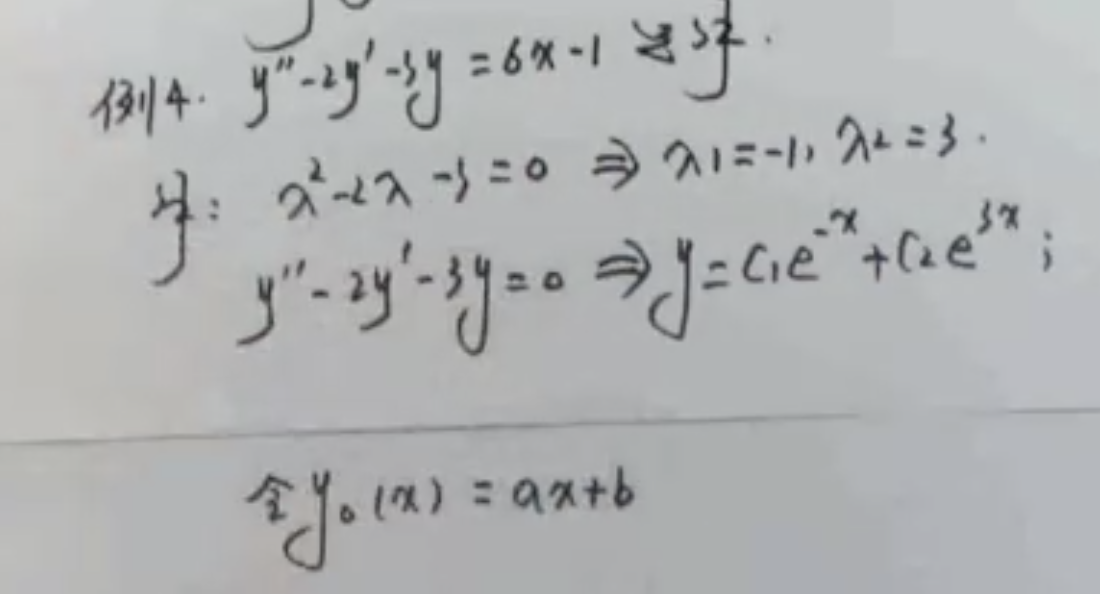 例4. y''-2y'-3y=6x-1 通解.
解: λ²-2λ-3=0 ⇒ λ1=-1, λ2=3.
y''-2y'-3y=0 ⇒ y=C₁e⁻ˣ+C₂e³ˣ;
令y₀(x)=ax+b